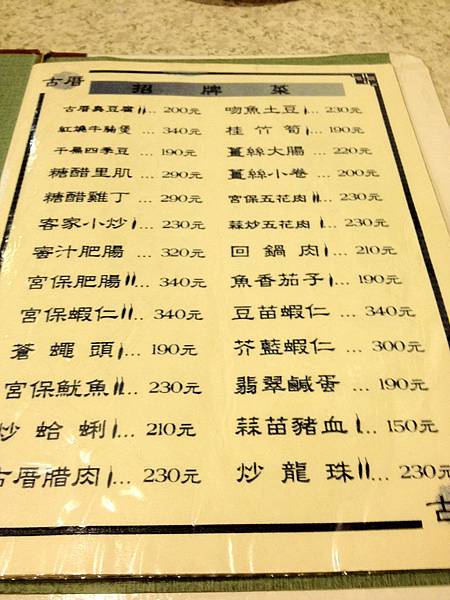 古厝
招牌菜
古厝臭豆腐... 200元
紅燒牛腩煲 ... 340元
干扁四季豆 ... 190元
糖醋里肌 ... 290元
糖醋雞丁 ... 290元
客家小炒... 230元
蜜汁肥腸 ... 320元
宮保肥腸... 340元
宮保蝦仁... 340元
蒼蠅頭... 190元
宮保魷魚... 230元
炒蛤蜊... 210元
古厝腊肉... 230元
吻魚土豆... 230元
桂竹筍... 190元
薑絲大腸 ... 220元
薑絲小卷 ... 200元
宮保五花肉... 230元
蒜炒五花肉... 230元
回鍋肉... 210元
魚香茄子... 190元
豆苗蝦仁 ... 340元
芥藍蝦仁 ... 300元
翡翠鹹蛋 ... 190元
蒜苗豬血... 150元
炒龍珠... 230元
古